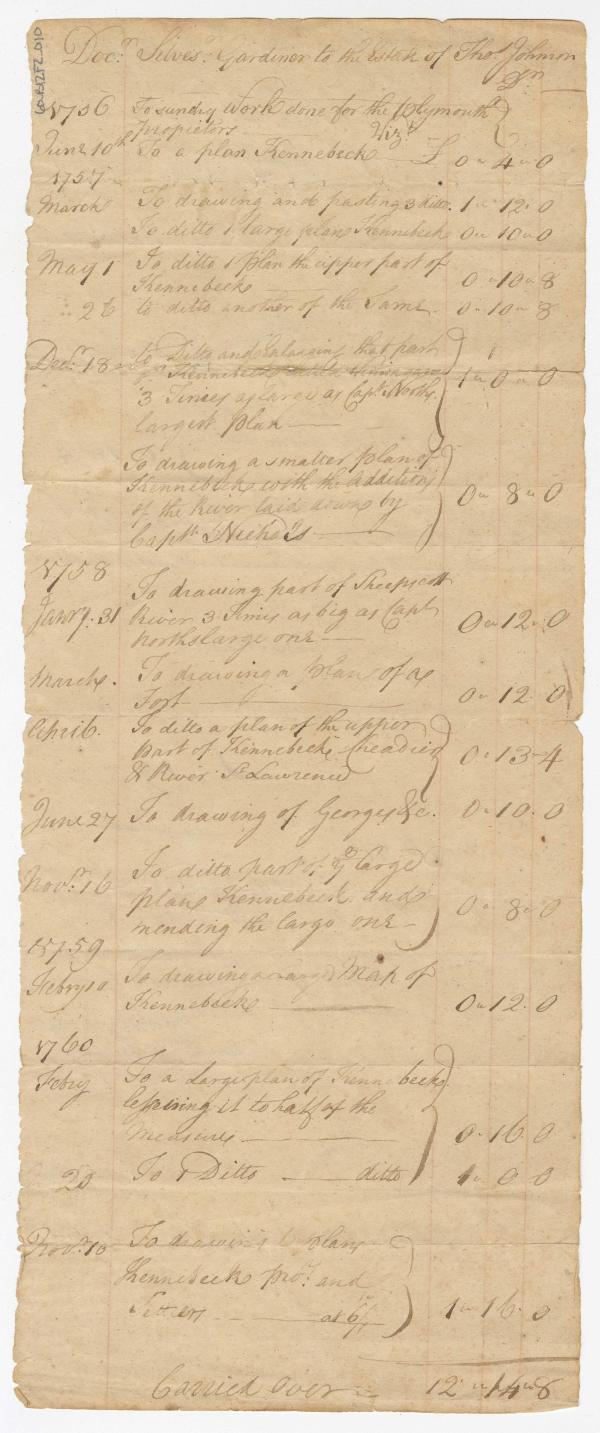 Doc.r Silves.r Gardiner to the Estate of Tho.s Johnson
Dr
1756 To sundry Work done for the Plymouth
propietors Viz.t
June 10th To a plan Kennebeck £ 0 " 4 " 0
1757
March To drawing and pasting 3 ditto. 1 " 12 " 0
To ditto 1 large plan Kennebeck 0 " 10 " 0
May 1 To ditto 1 plan the upper part of
Kennebeck 0 " 10 " 8
" 26 to ditto another of the Same 0 " 10 " 8
Decr. 18 to Ditto and Enlarging that part
Kennebeck
3 Times as large as Capt. Norths 1 " 0 " 0
largest plan
To drawing a smaller plan of
Kennebeck with the Additions
of the River laid down by 0 " 8 " 0
Captn.
1758
Janry. 31 To drawing part of Sheepscott
River 3 Times as big as Capt 0 " 12 " 0
Norths large one
March. To drawing a plan of a
Fort 0 " 12 " 0
April 6. To ditto a plan of the upper
part of Kennebeck 0 " 13 " 4
& River St. Lawrence
June 27 To drawing of Georges &c. 0 " 10 " 0
Novr. 16 To ditto part of ye large
plan Kennebeck and 0 " 8 " 0
mending the large one
1759
Febry 10 To drawing a large Map of
Kennebeck 0 " 12 " 0
1760
Febry To a Large plan of Kennebeck
lessining it to half of the
Measures 0 " 16 " 0
20 To 1 Ditto ditto 1 " 0 " 0
Novr. 10 To drawing 6 plans
Kennebeck and
at 6/ 1 " 16 " 0
Carried Over 12 " 14 " 8